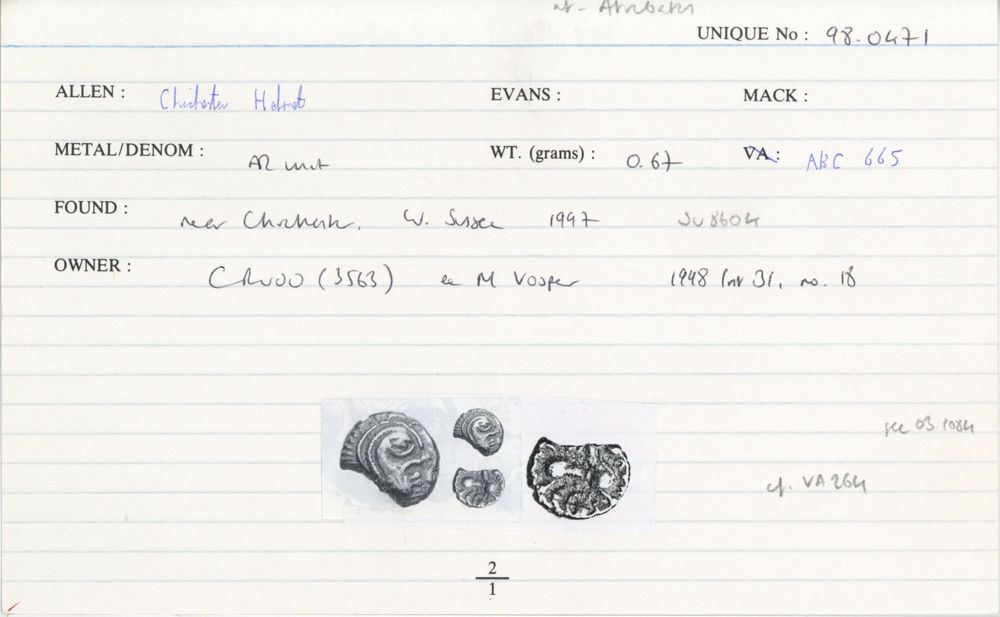 UNIQUE No : 98.0471
ALLEN : Chichester Helmet EVANS : MACK :
METAL/DENOM : AR unit WT. (grams) : 0.67 VA : ABC 665
FOUND : near Chichester, W. Sussex 1997 SU8604
OWNER : CR (3563) ex M Vosper 1998 31, no. 18
see 03.1084
cf. VA 264
2
1